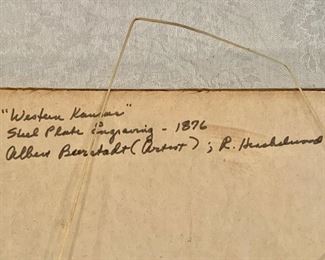 "Western Kansas"
Steel Plate Engraving - 1876
Albert Bierstadt (Artist) ; R. Hinshelwood